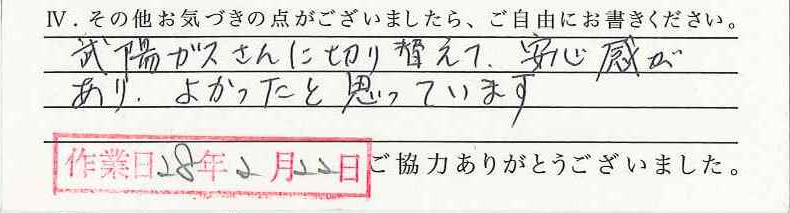 Ⅳ．その他お気づきの点がございましたら、ご自由にお書きください。
武陽ガスさんに切り替えて、安心感が
あり、よかったと思っています
作業日28年2月22日ご協力ありがとうございました。